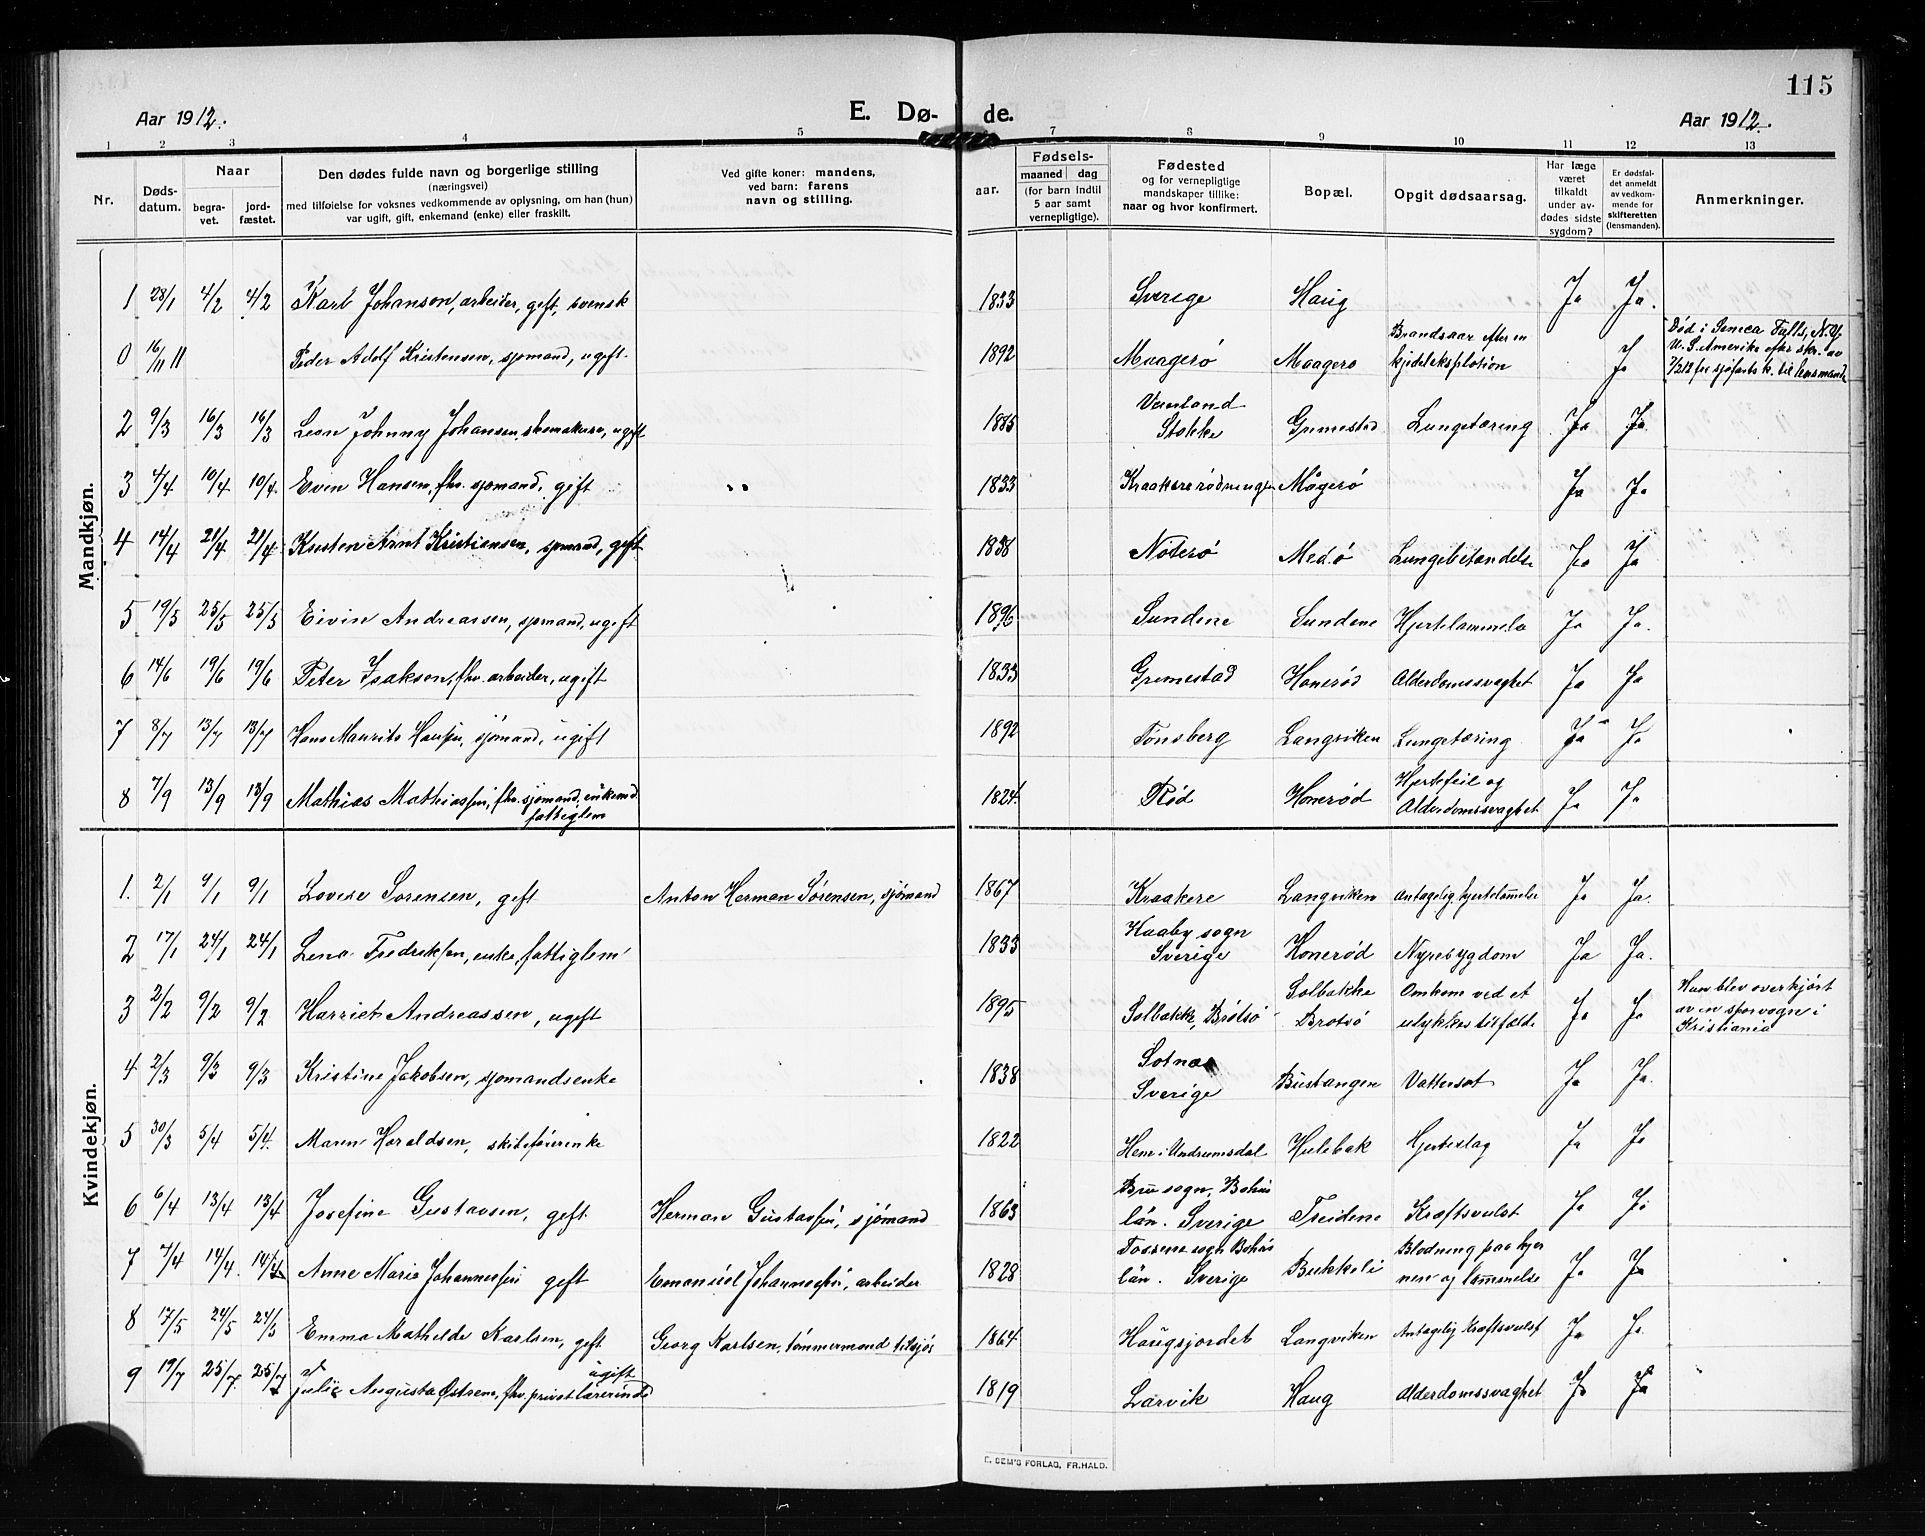 115
Aar 1912.
E. Dø-
de.
Aar 1912.
1 2 3 4 5 7 8 9 10 11 12 13
Nr.
Døds-
datum.
Naar
begra-
vet.
jord-
fæstet.
Den dødes fulde navn og borgerlige stilling
(næringsvei)
med tilføielse for voksnes vedkommende av oplysning, om han (hun)
var ugift, gift, enkemand (enke) eller fraskilt.
Ved gifte koner: mandens,
ved barn: farens
navn og stilling.
aar.
Fødsels-
maaned dag
(for barn indtil
5 aar samt
vernepligtige).
Fødested
og for vernepligtige
mandskaper tillike:
naar og hvor konfirmert.
Bopæl.
Opgit dødsaarsag.
Har læge
været
tilkaldt
under av-
dødes sidste
sygdom?
Er dødsfal-
det anmeldt
av vedkom-
mende for
skifteretten
(lensmanden).
Anmerkninger.
Mandkjøn.
1 28/1 4/2 4/2 Karl Johanson, arbeider, gift, svensk 1833 Sverige Haug Ja Ja.
0 16/11 11 Peder Adolf Kristensen, sjømand, ugift. 1892 Maagerø Maagerø Brandsaar efter en
kjedeleksplotion Ja Død i Seneca Falls, N.Y.
U. S. Amerika efter skr. av
7/2 12 fra sjøfartsk. til lensmand
2 9/3 16/3 16/3 Leon Johnny Johansen, skomakersv, ugift 1885 Stokke Grimestad Lungetæring Ja Ja.
3 4/4 10/4 10/4. Even Hansen, fhv. sjømand, gift 1833 Kraakere rødningen Mågerø Ja Ja
4 14/4 21/4 21/4. Kristen Arnt Kristiansen, sjømand, gift 1838 Nøterø Medø Lungebetændelse Ja Ja
5 19/5 25/5 25/5 Eivin Andreassen, sjømand, ugift 1896 Sundene Sundene Hjertelammelse Ja Ja.
6 14/6 19/6 19/6 Peter Isakson, fhv. arbeider, ugift 1833 Grimestad Honerød Alderdomssvaghet Ja Ja
7 8/7 13/7 13/7 Hans Maurits Hansen, sjømand, ugift 1892 Tønsberg Langviken Lungetæring Ja Ja
8 7/9 13/9 13/9 Mathias Mathiassen, fhv. sjømand, enkemd
fattiglem 1824. Rød Honerød Hjertefeil og
Alderdomssvaghet Ja Ja
Kvindekjøn.
1. 2/1 9/1 9/1 Lovise Sørensen, gift Anton Herman Sørensen, sjømand 1867 Kraakere Langviken antagelig hjertelammelse Ja Ja.
2 17/1 24/1 24/1 Lena Fredriksen, enke, fattiglem 1833 Kaaby sogn
Sverige Honerød Nyresygdom Ja Ja.
3 2/2 9/2 9/2 Harriet Andreassen, ugift 1895 Solbakke, Brøtsø Solbakke
Brøtsø Omkom ved et
ulykkestilfælde Ja Ja Hun blev overkjørt
av en sporvogn i
Kristiania
4 2/3 9/3 9/3 Kristine Jakobsen, sjømandsenke 1838 Sotnæs
Sverige Bustangen Vattersot Ja Ja.
5 30/3 5/4 5/4. Maren Haraldsen, skibsførerenke 1822 Hem i Undrumsdal Hulebak Hjerteslag Ja Ja
6 6/4 13/4 13/4 Josefine Gustavsen, gift. Herman Gustavsen, sjømand 1863 Bru sogn, Bohus
län. Sverige Treidene Kræftsvulst Ja Ja
7 7/4 14/4. 14/4 Anne Marie Johannessen gift Emanuel Johannessen, arbeider 1828 Tossene sogn Bohus
län. Sverige Bukkeli Blødning paa hjer
nen og lammelse Ja Ja
8 17/5 24/5 24/5 Emma Mathilde Karlsen, gift Georg Karlsen, tømmermand tilsjøs 1864 Haugsjordet Langviken Antagelig Kræftsvulst Ja Ja.
9 19/7 25/7. 25/7 Julie Augusta Østrem, fhv. privat lærerinde
ugift 1819 Larvik Haug Alderdomssvaghet Ja Ja
E. SEM'S FORLAG, FR.HALD.